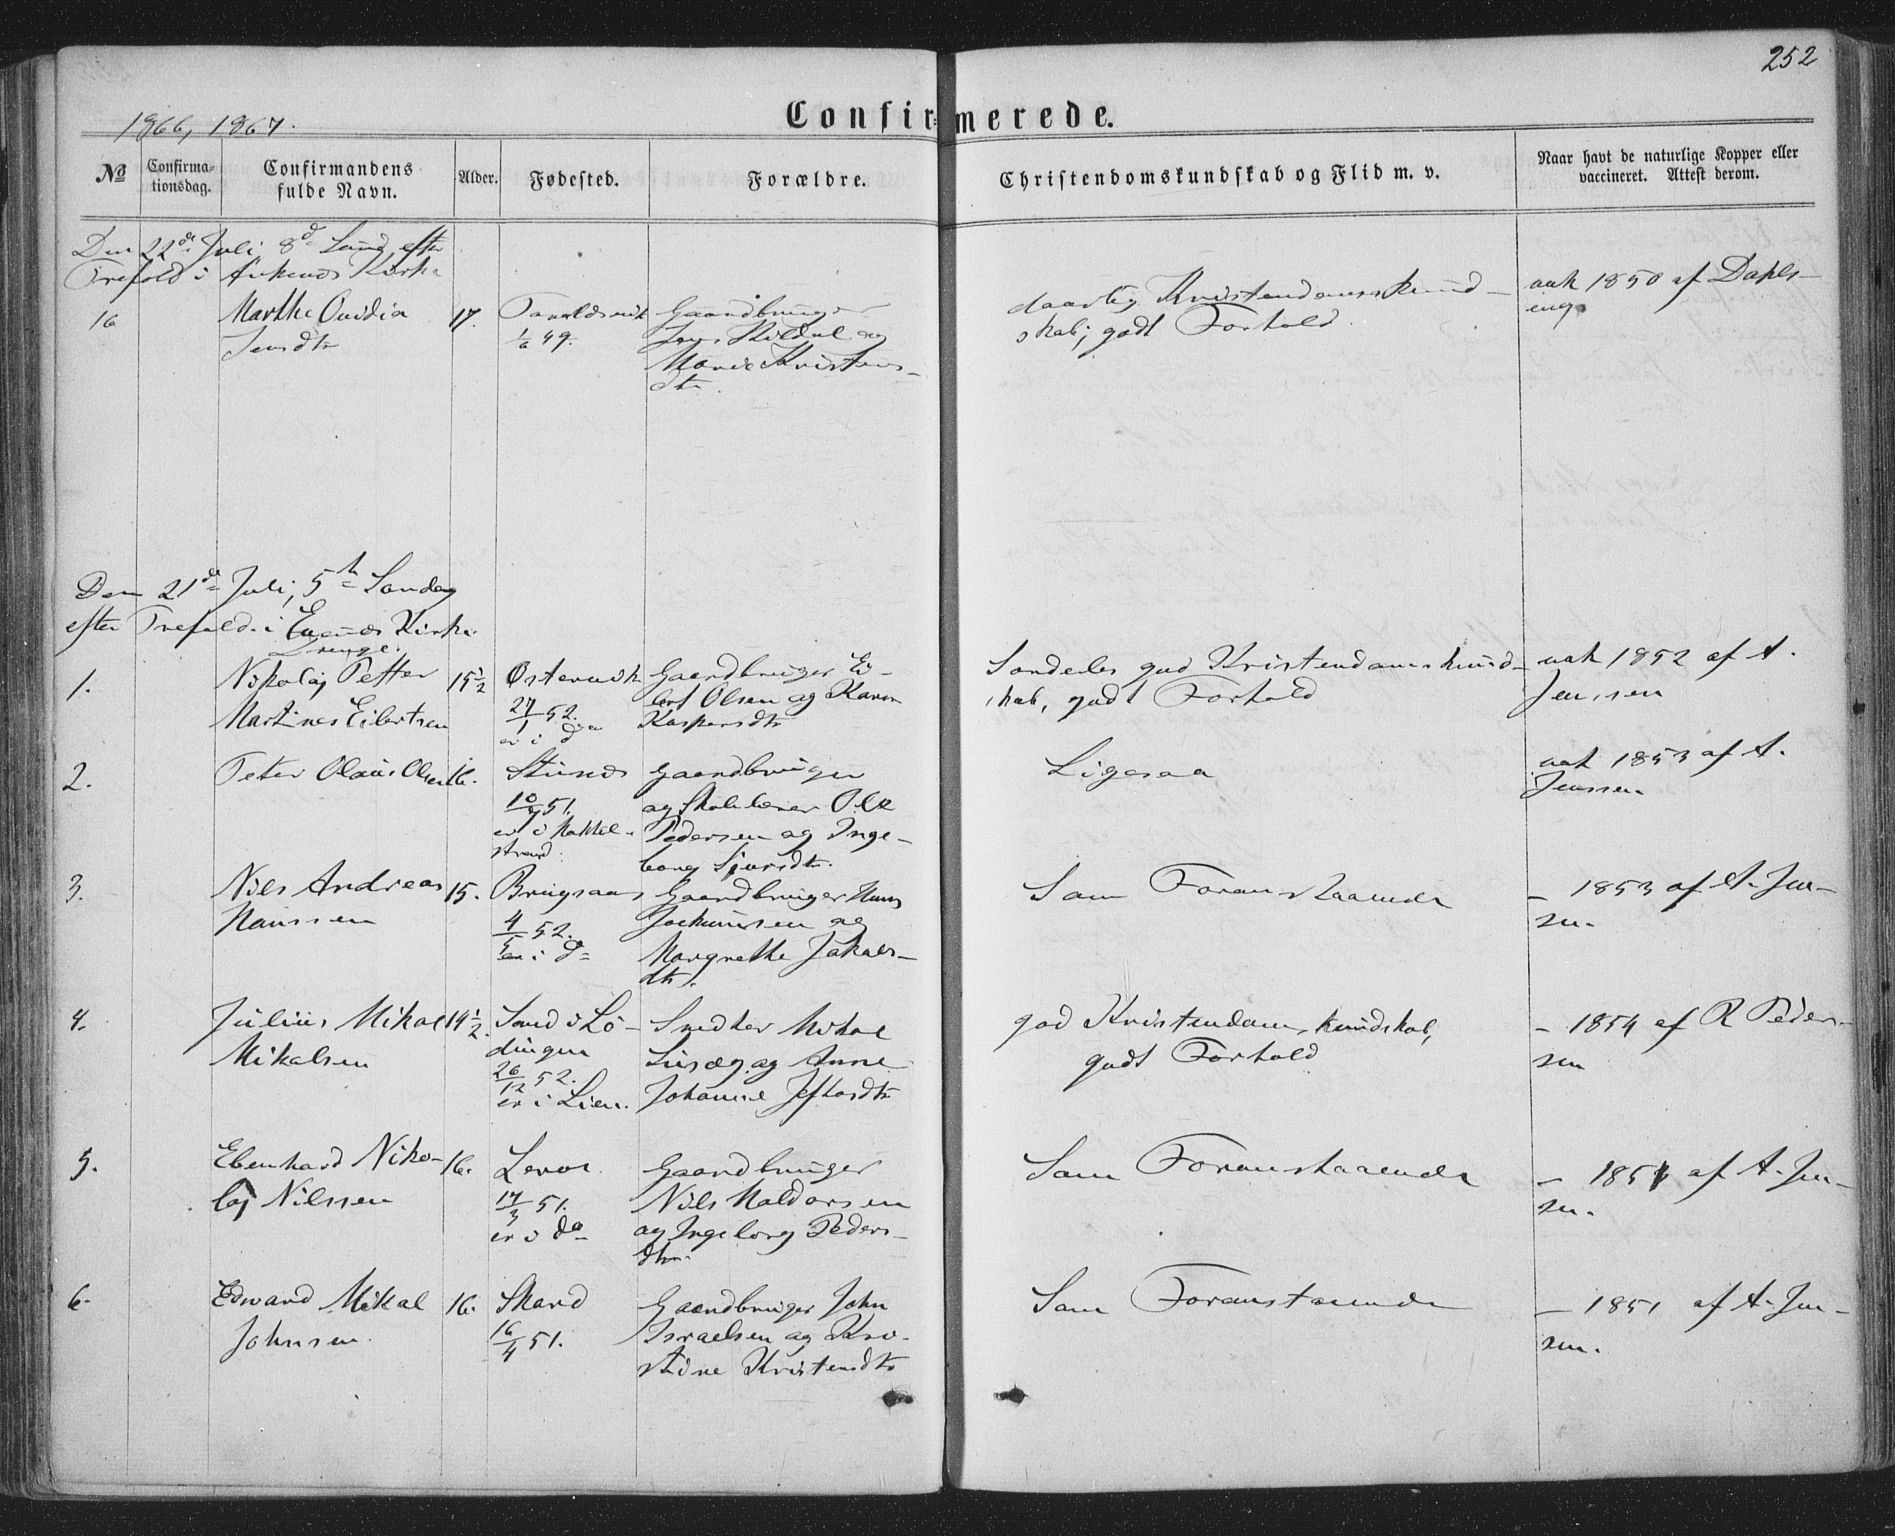 252
1866, 1867.
Confirmerede.
No
Confirma-
tionsdag.
Confirmandens
fulde Navn.
Alder.
Fødested.
Forældre.
Christendomskundskab og Flid m. v.
Naar havt de naturlige Kopper eller
vaccineret. Attest derom.
Den 22de Juli 8d Sønd efter
Trefold i Ankenes Kirke
16
Marthe Ovidia
Jensdtr
17.
Taraldsvik
1/6 49.
Gaardbruger
Jens Kildal og
Marie Kristens-
dtr
daarlig Kristendomskund-
skab; godt Forhold
vak 1850 af Dahls-
eng
Den 21de Juli, 5te Søndag
efter Trefold. i Evenes Kirke
Drenge.
1.
Nikolaj Petter
Martines Eilertsen
15 1/2
Østervik
27/1 52.
er i do
Gaardbruger Ei-
lert Olsen og Karen
Kaspersdtr
Særdeles god Kristendomskund-
skab, godt Forhold
vak 1852 af A.
Jenssen
2.
Peter Olaus Olsen
16.
Stunes
10/7 51.
er i Kakkel-
strand.
Gaardbruger
og Skolelærer Ole
Pedersen og Inge-
borg Sjursdtr.
Ligesaa
vak 1853 af A.
Jenssen
3.
Nils Andreas
Hanssen
15.
Brugsaas
4/5 52.
er i do
Gaardbruger Hans
Jochumsen og
Margrethe Jakobs-
dtr.
Som Foranstaaende
- 1853 af A. Jen-
sen.
4.
Julius Mikal
Mikalsen
14 1/2
Sand i Lø-
dingen
26/12 52.
er i Lien.
Snedker Mikal
og Anne
Johanne Jeftasdtr
god Kristendomskundskab,
godt Forhold
- 1854 af R Peder-
sen
5.
Ebenhard Niko-
laj Nilssen
16.
Leros
17/3 51.
er i do
Gaardbruger
Nils Haldorsen
og Ingeborg Peders-
dtr.
Som Foranstaaende
- 1851 af A. Jen-
sen.
6.
Edvard Mikal
Johnsen.
16.
Skard
16/4 51.
Gaardbruger John
Israelsen og Kri-
stine Kristensdtr
Som Foranstaaende
- 1851 af A. Jen-
sen.